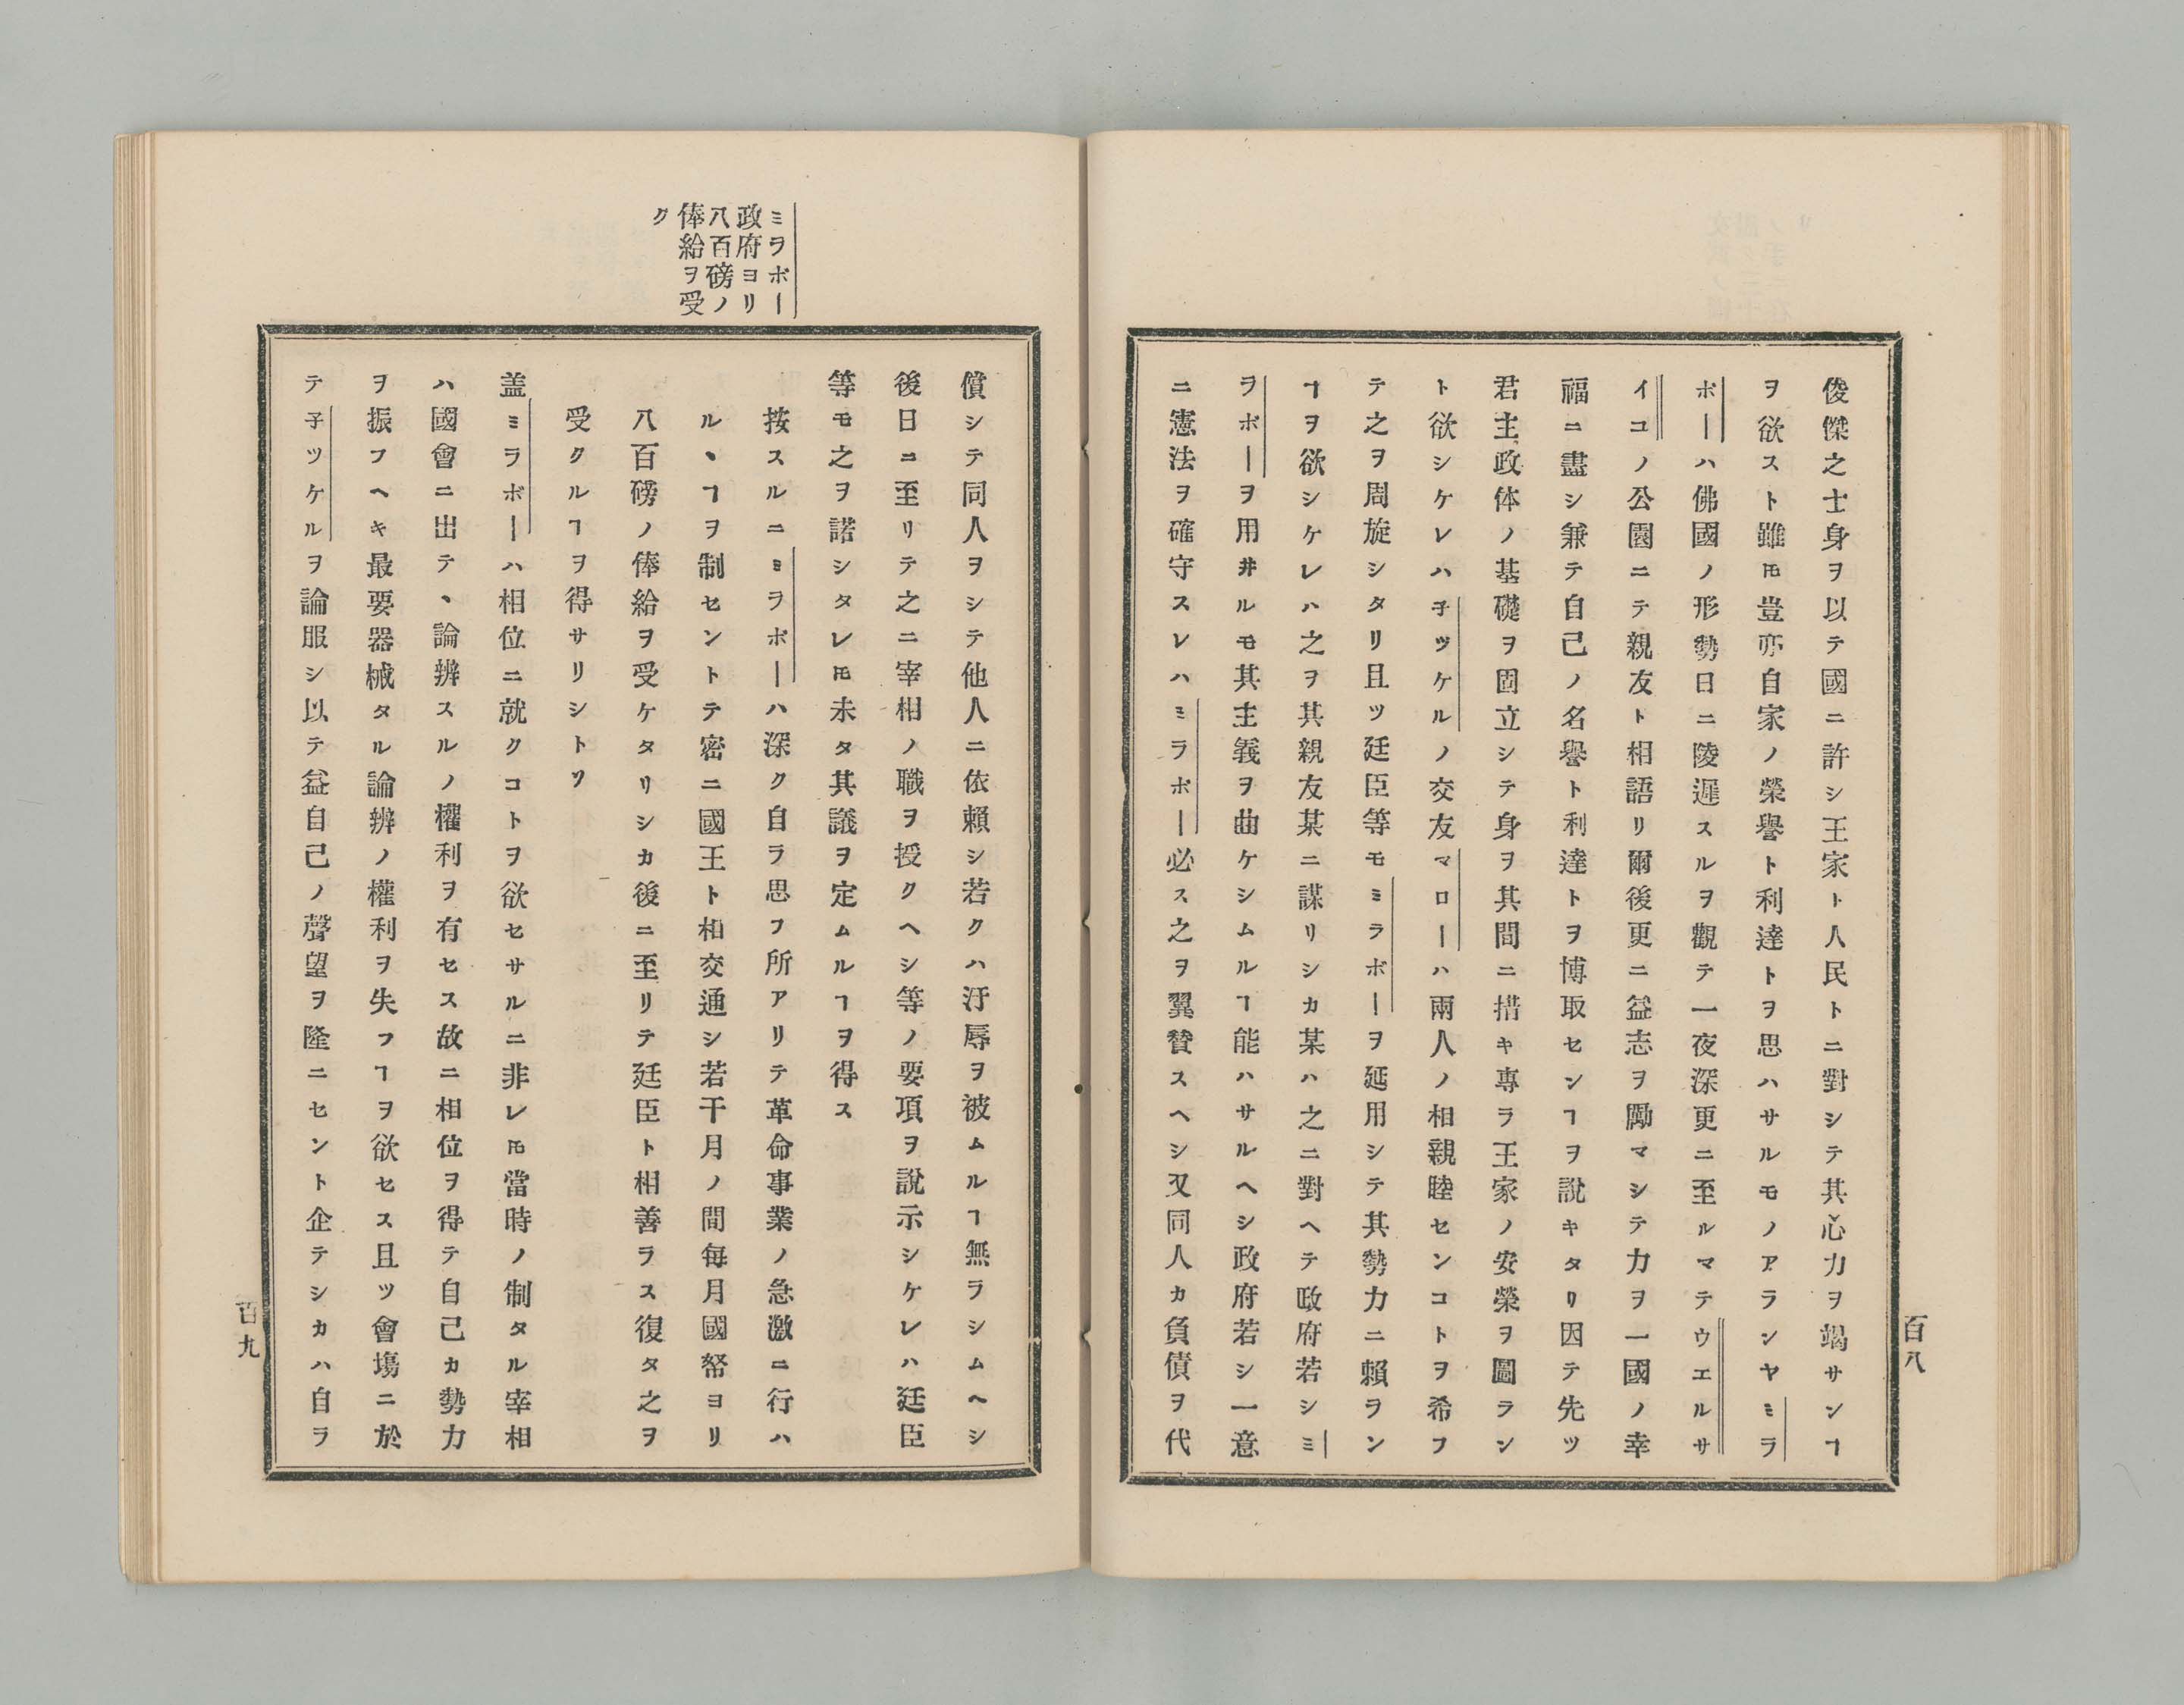 俊傑之士身ヲ以テ國ニ許シ王家ト人民トニ對シテ其心力ヲ竭サンヿ
ヲ欲スト雖𪜈豈亦自家ノ榮譽ト利達トヲ思ハサルモノアランヤミラ
ボーハ佛國ノ形勢日ニ陵遲スルヲ觀テ一夜深更ニ至ルマテウエルサ
イユノ公園ニテ親友ト相語リ爾後更ニ益志ヲ勵マシテ力ヲ一國ノ幸
福ニ盡シ兼テ自己ノ名譽ト利達トヲ博取センヿヲ說キタリ因テ先ツ
君主政体ノ基礎ヲ固立シテ身ヲ其間ニ措キ專ラ王家ノ安榮ヲ圖ラン
ト欲シケレハ子ツケルノ交友マローハ兩人ノ相親睦センコトヲ希フ
テ之ヲ周旋シタリ且ツ廷臣等モミラボーヲ延用シテ其勢力ニ賴ラン
ヿヲ欲シケレハ之ヲ其親友某ニ謀リシカ某ハ之ニ對ヘテ政府若シミ
ラボーヲ用井ルモ其主義ヲ曲ケシムルヿ能ハサルヘシ政府若シ一意
ニ憲法ヲ確守スレハミラボー必ス之ヲ翼賛スヘシ又同人カ負債ヲ代
百八
ミラボー
政府ヨリ
八百磅ノ
俸給ヲ受
ク
償シテ同人ヲシテ他人ニ依賴シ若クハ汙辱ヲ被ムルヿ無ラシムヘシ
後日ニ至リテ之ニ宰相ノ職ヲ授クヘシ等ノ要項ヲ說示シケレハ廷臣
等モ之ヲ諾シタレ𪜈未タ其議ヲ定ムルヿヲ得ス
按スルニミラボーハ深ク自ラ思フ所アリテ革命事業ノ急激ニ行ハ
ルヽヿヲ制セントテ密ニ國王ト相交通シ若干月ノ間每月國帑ヨリ
八百磅ノ俸給ヲ受ケタリシカ後ニ至リテ廷臣ト相善ラス復タ之ヲ
受クルヿヲ得サリシトソ
盖ミラボーハ相位ニ就クコトヲ欲セサルニ非レ𪜈當時ノ制タル宰相
ハ國會ニ出テヽ論辨スルノ權利ヲ有セス故ニ相位ヲ得テ自己カ勢力
ヲ振フヘキ最要器械タル論辨ノ權利ヲ失フヿヲ欲セス且ツ會塲ニ於
テ子ツケルヲ論服シ以テ益自己ノ聲望ヲ隆ニセント企テシカハ自ラ
百九